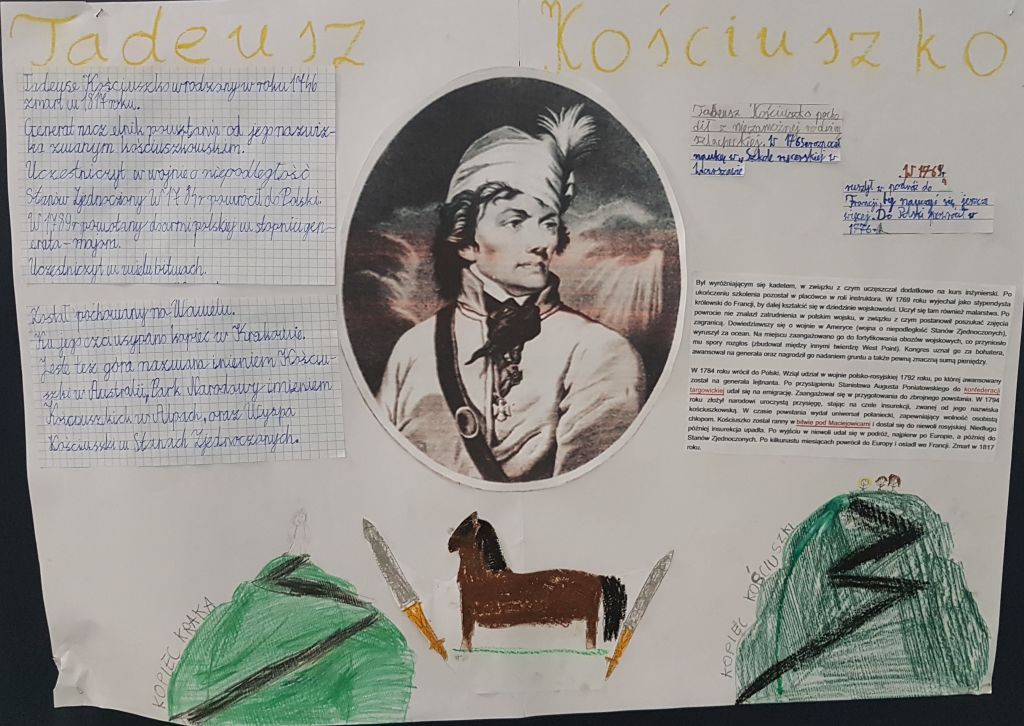 Tadeusz Kościuszko
Tadeusz Kościuszko urodzony w roku 1746
zmarł w 1817 roku.
Generał nacz elnik powstania od jego nazwis-
ka zwanym kościuszkowskim.
Uczestniczył w wojnie o niepodległość
Stanów Zjednoczony W 17 84r powrócił do Polski.
W 1789r powołany do armi polskiej w stopniu gen-
erała-majora.
Uczestniczył w wielu bitwach.
Został pochowany na Wawelu.
Ku jego czci usypano kopiec w Krakowie.
Jest też góra nazwana imieniem Kościu-
szki w Australii, Park Narodowy imieniem
Kościuszki w Alpach, oraz Wyspa
Kościuszka w Stanach Zjednoczonych.
Tadeusz Kościuszko pocho
dził z niezamożnej rodziny
szlacheckiej. W 1765 rozpoczął
naukę w Szkole rycerskiej w
Warszawie
W 1769r
ruszył w podróż do
Francji, by nauczyć się jeszcze
więcej. Do Polski powrócił w
1776r.
Był wyróżniającym się kadetem, w związku z czym uczęszczał dodatkowo na kurs inżynierski. Po
ukończeniu szkolenia pozostał w placówce w roli instruktora. W 1769 roku wyjechał jako stypendysta
królewski do Francji, by dalej kształcić się w dziedzinie wojskowości. Uczył się tam również malarstwa. Po
powrocie nie znalazł zatrudnienia w polskim wojsku, w związku z czym postanowił poszukać zajęcia
zagranicą. Dowiedziawszy się o wojnie w Ameryce (wojna o niepodległość Stanów Zjednoczonych),
wyruszył za ocean. Na miejscu zaangażowano go do fortyfikowania obozów wojskowych, co przyniosło
mu spory rozgłos (zbudował między innymi twierdzę West Point). Kongres uznał go za bohatera,
awansował na generała oraz nagrodził go nadaniem gruntu a także pewną znaczną sumą pieniędzy.
W 1784 roku wrócił do Polski. Wziął udział w wojnie polsko-rosyjskiej 1792 roku, po której awansowany
został na generała lejtnanta. Po przystąpieniu Stanisława Augusta Poniatowskiego do konfederacji
targowickiej udał się na emigrację. Zaangażował się w przygotowania do zbrojnego powstania. W 1794
roku złożył narodowi uroczystą przysięgę, stając na czele insurekcji, zwanej od jego nazwiska
kościuszkowską. W czasie powstania wydał uniwersał połaniecki, zapewniający wolność osobistą
chłopom. Kościuszko został ranny w bitwie pod Maciejowicami i dostał się do niewoli rosyjskiej. Niedługo
później insurekcja upadła. Po wyjściu w niewoli udał się w podróż, najpierw po Europie, a później do
Stanów Zjednoczonych. Po kilkunastu miesiącach powrócił do Europy i osiadł we Francji. Zmarł w 1817
roku.
KOPIEC KRAKA
KOPIEC KOŚCIUSZKI